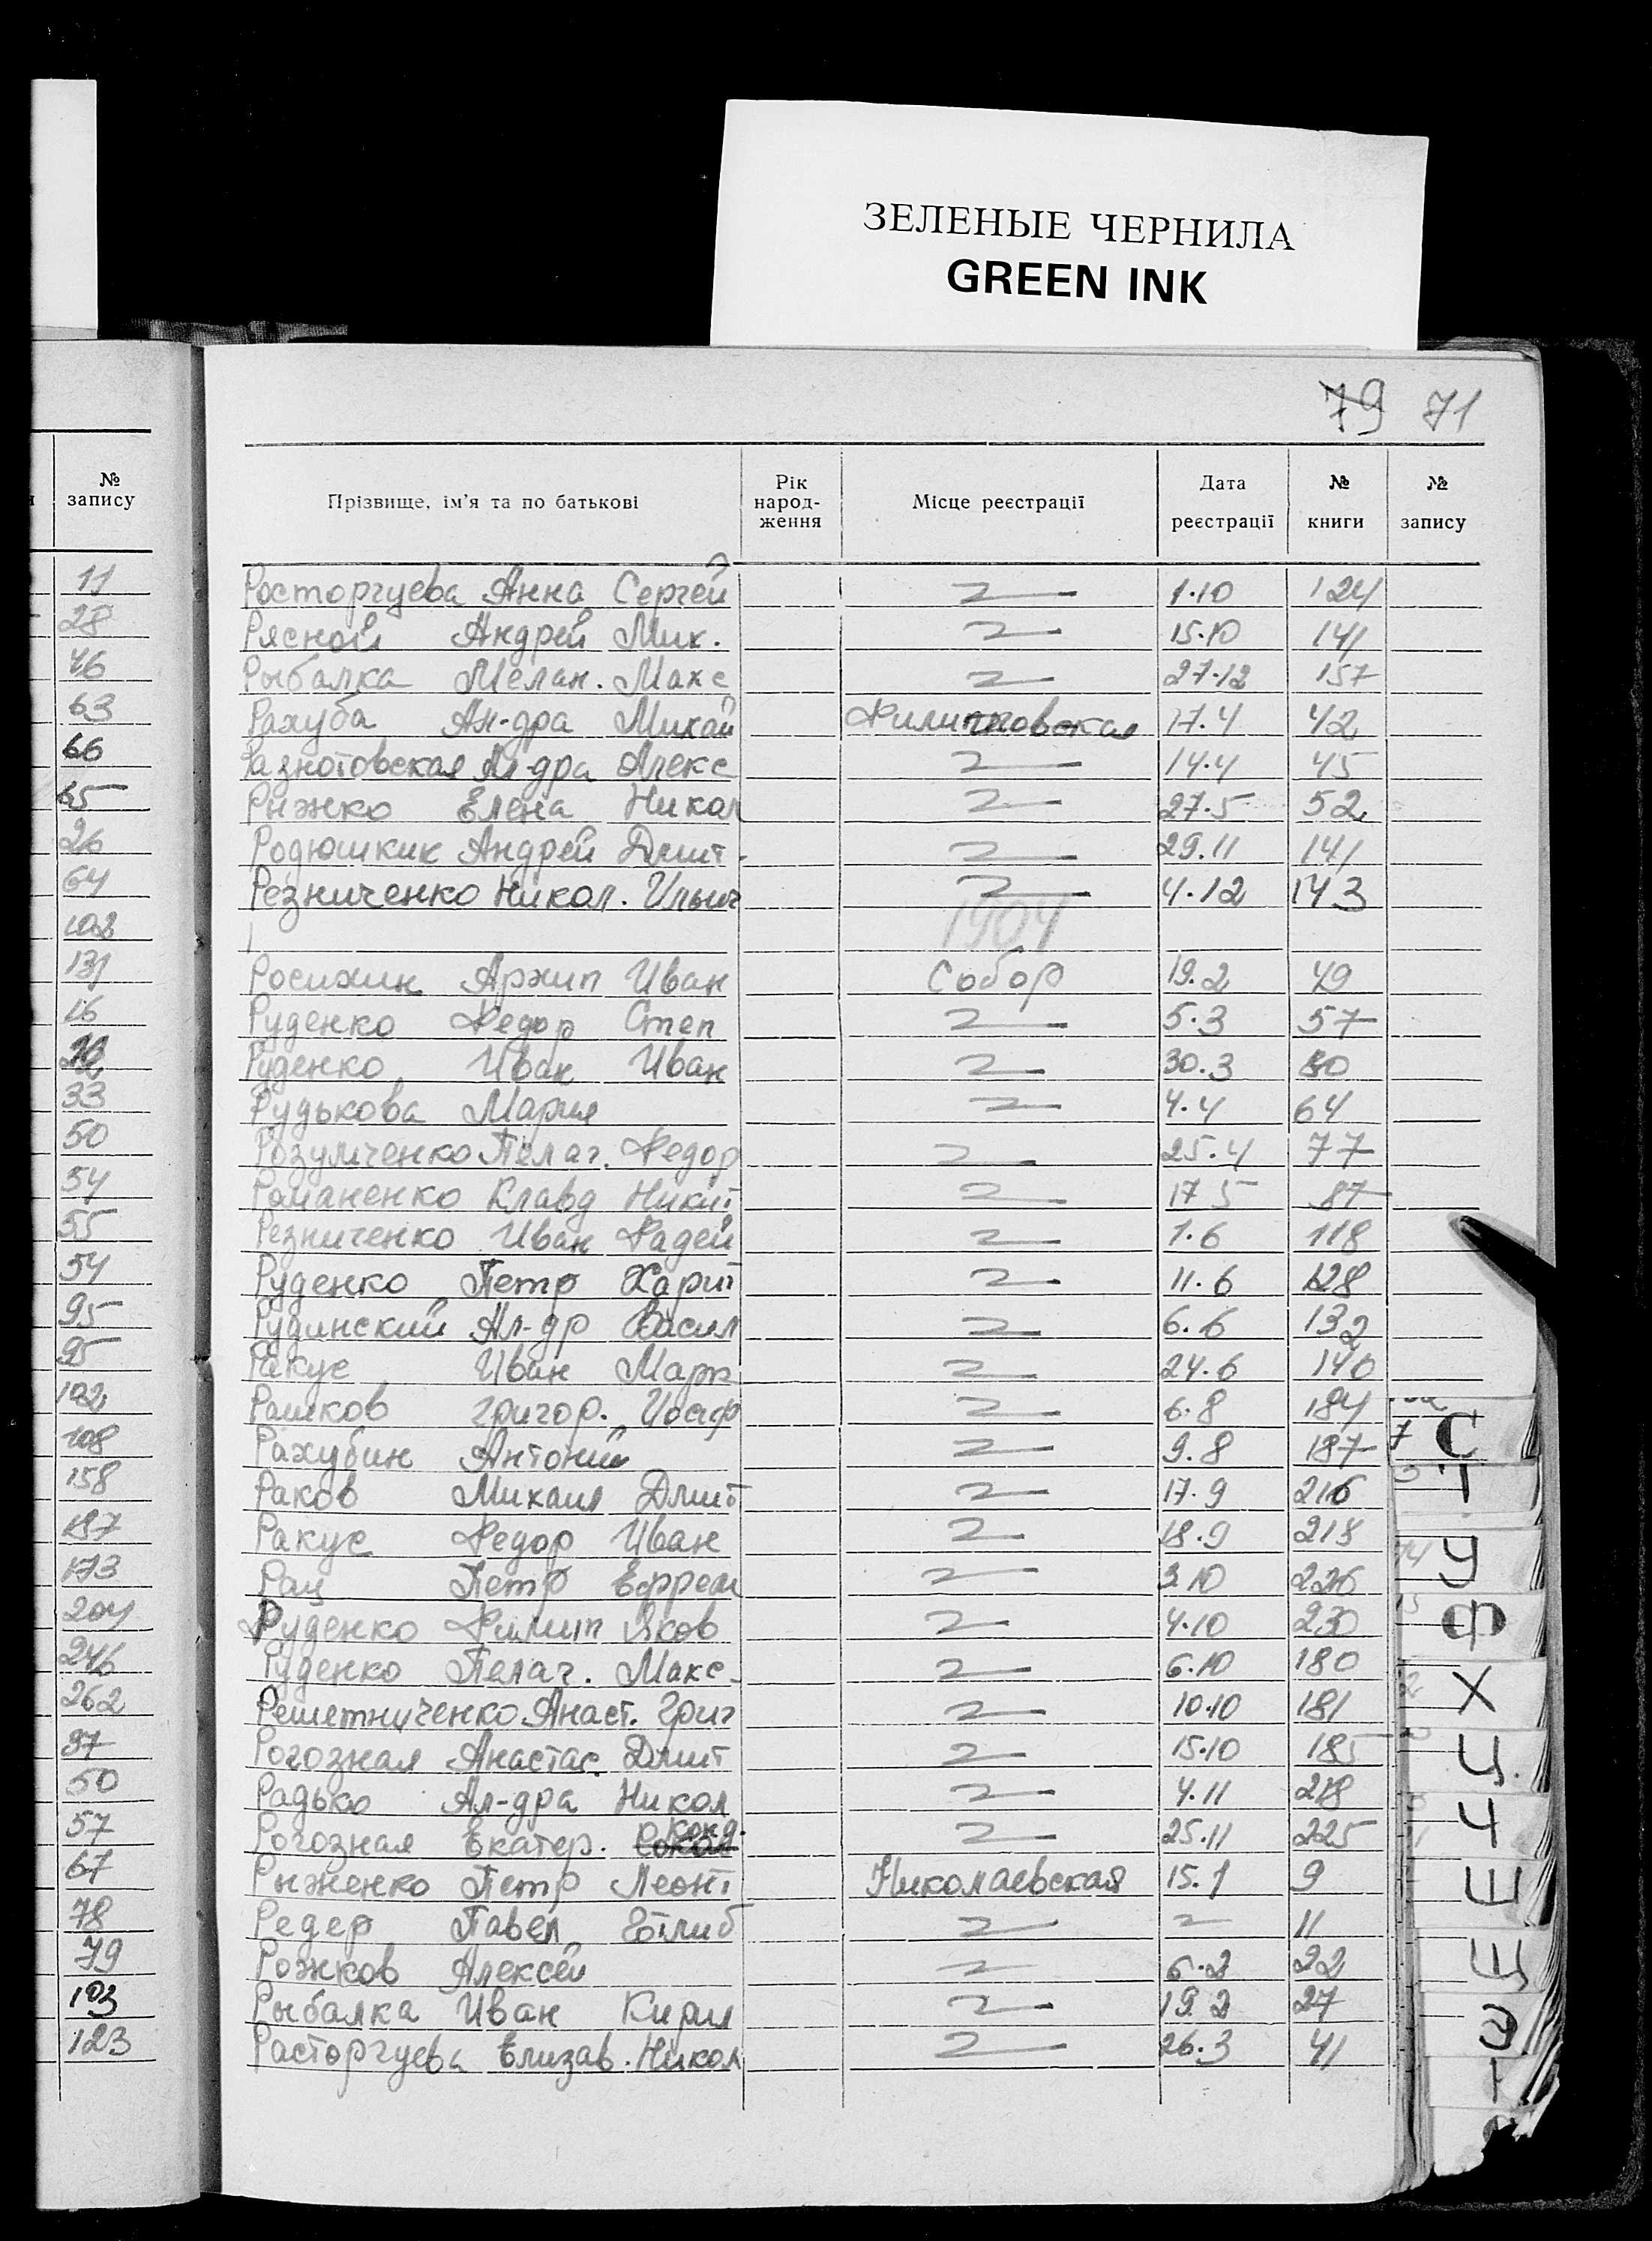 ЗЕЛЕНЫЕ ЧЕРНИЛА
GREEN INK
79 71
№ запису
Прізвище, ім'я та по батькові Рік народження Місце реєстрації Дата реєстрації № книги № запису
11
28
46
63
66
65
26
64
102
131
16
33
50
54
55
54
95
95
102
108
158
187
173
204
246
262
37
50
57
67
78
79
103
123
Росторгуева Анна Сергей 1.10 124
Рясной Андрей Мик. 15.10 141
Рыбалка Мелан. Макс 27.12 157
Рахуба Ал-дра Михай Филипповская 17.4 42
Разнотовская Ал-дра Алекс 14.4 45
Рыжко Елена Никол 27.5 52
Родюшкин Андрей Дмит. 29.11 141
Резниченко Никол. Ильич 4.12 143
1904
Росихин Архип Иван Собор 19.2 49
Руденко Федор Степ 5.3 57
Руденко Иван Иван 30.3 80
Рудькова Мария 4.4 64
Розумченко Пелаг. Федор 25.4 77
Романенко Клавд Никит 17 5 87
Резниченко Иван Фадей 1.6 118
Руденко Петр Харит 11.6 128
Рудинский Ал-др Васил 6.6 132
Ракус Иван Марк 24.6 140
Рашков Григор. Иосиф 6.8 184
Рахубин Антоний 9.8 187
Раков Михаил Дмит 17.9 216
Ракус Федор Иван 18.9 218
Рац Петр Ефрем 3.10 226
Руденко Филип Яков 4.10 230
Руденко Пелаг. Макс. 6.10 180
Решетниченко Анаст. Григ 10.10 181
Рогозная Анастас. Дмит 15.10 185
Радько Ал-дра Никол 4.11 218
Рогозная Екатер. Конд. 25.11 225
Рыженко Петр Леонт Николаевская 15.1 9
Редер Павел Готлиб 11
Рожков Алексей 6.2 22
Рыбалка Иван Кирил 19 2 27
Расторгуева Елизав. Никол 26.3 41
С
Т
У
Ф
Х
Ц
Ч
Ш
Щ
Э